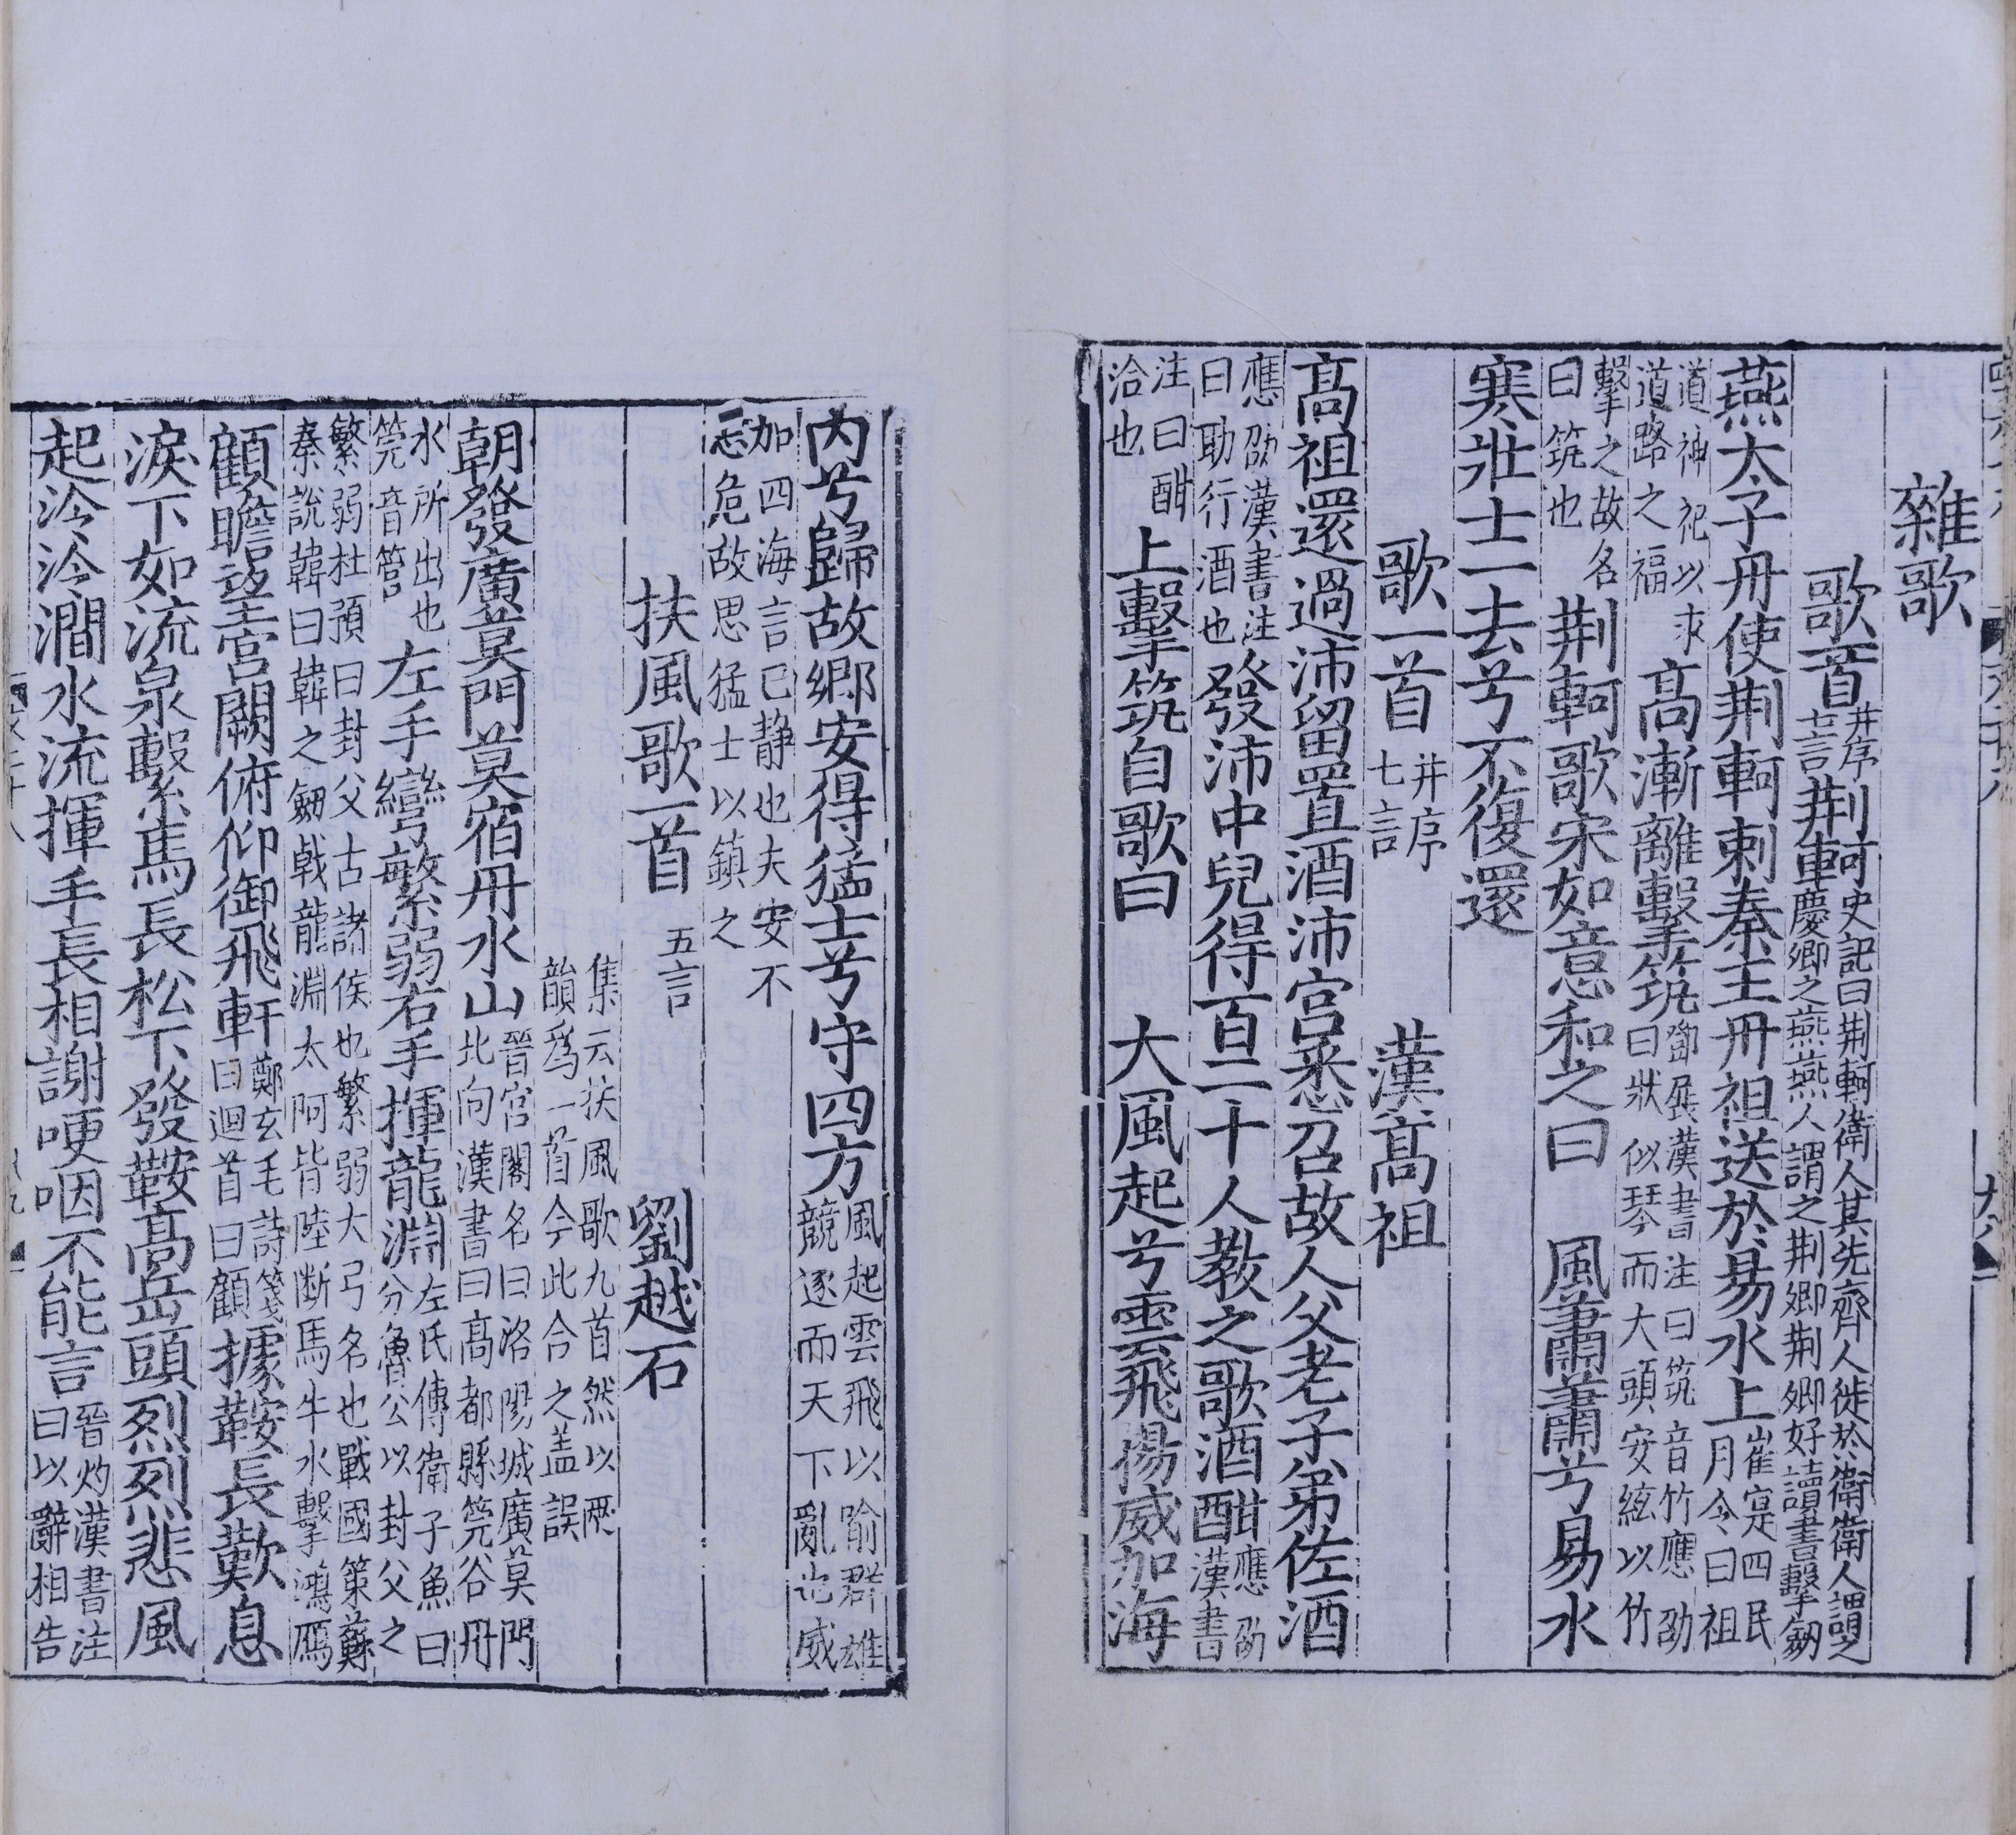 雜歌
歌一首并序七言荆軻史記曰荆軻衛人其先齊人徙於衛衛人謂之慶卿之燕燕人謂之荆卿荆卿好讀書擊劒
燕太子丹使荆軻刺秦王丹祖送於易水上崔寔四民月令曰祖
道神祀以求道路之福高漸離擊筑鄧展漢書注曰筑音竹應劭曰狀似琴而大頭安絃以竹
擊之故名曰筑也荆軻歌宋如意和之曰風蕭蕭兮易水
寒壯士一去兮不復還
歌一首并序七言漢高祖
高祖還過沛留置酒沛宫悉召故人父老子弟佐酒
應劭漢書注曰助行酒也發沛中兒得百二十人教之歌酒酣應劭漢書
注曰酣洽也上擊筑自歌曰大風起兮雲飛揚威加海
内兮歸故鄉安得猛士兮守四方風起雲飛以喻群雄競逐而天下亂也威
加四海言已静也夫安不忘危故思猛士以鎮之
扶風歌一首五言劉越石
集云扶風歌九首然以兩韻爲一首今此合之盖誤
朝發廣莫門莫宿丹水山晉宫閣名曰洛陽城廣莫門北向漢書曰高都縣筦谷丹
水所出也筦音管左手彎繁弱右手揮龍淵左氏傳衛子魚曰分魯公以封父之
繁弱杜預曰封父古諸侯也繁弱大弓名也戰國策蘇秦說韓曰韓之劒戟龍淵太阿皆陸断馬牛水擊鴻鴈
顧瞻望宫闕俯仰御飛軒鄭玄毛詩箋曰迴首曰顧據鞍長歎息
淚下如流泉繫馬長松下發鞍高岳頭烈烈悲風
起泠泠澗水流揮手長相謝哽咽不能言晉灼漢書注曰以辭相告